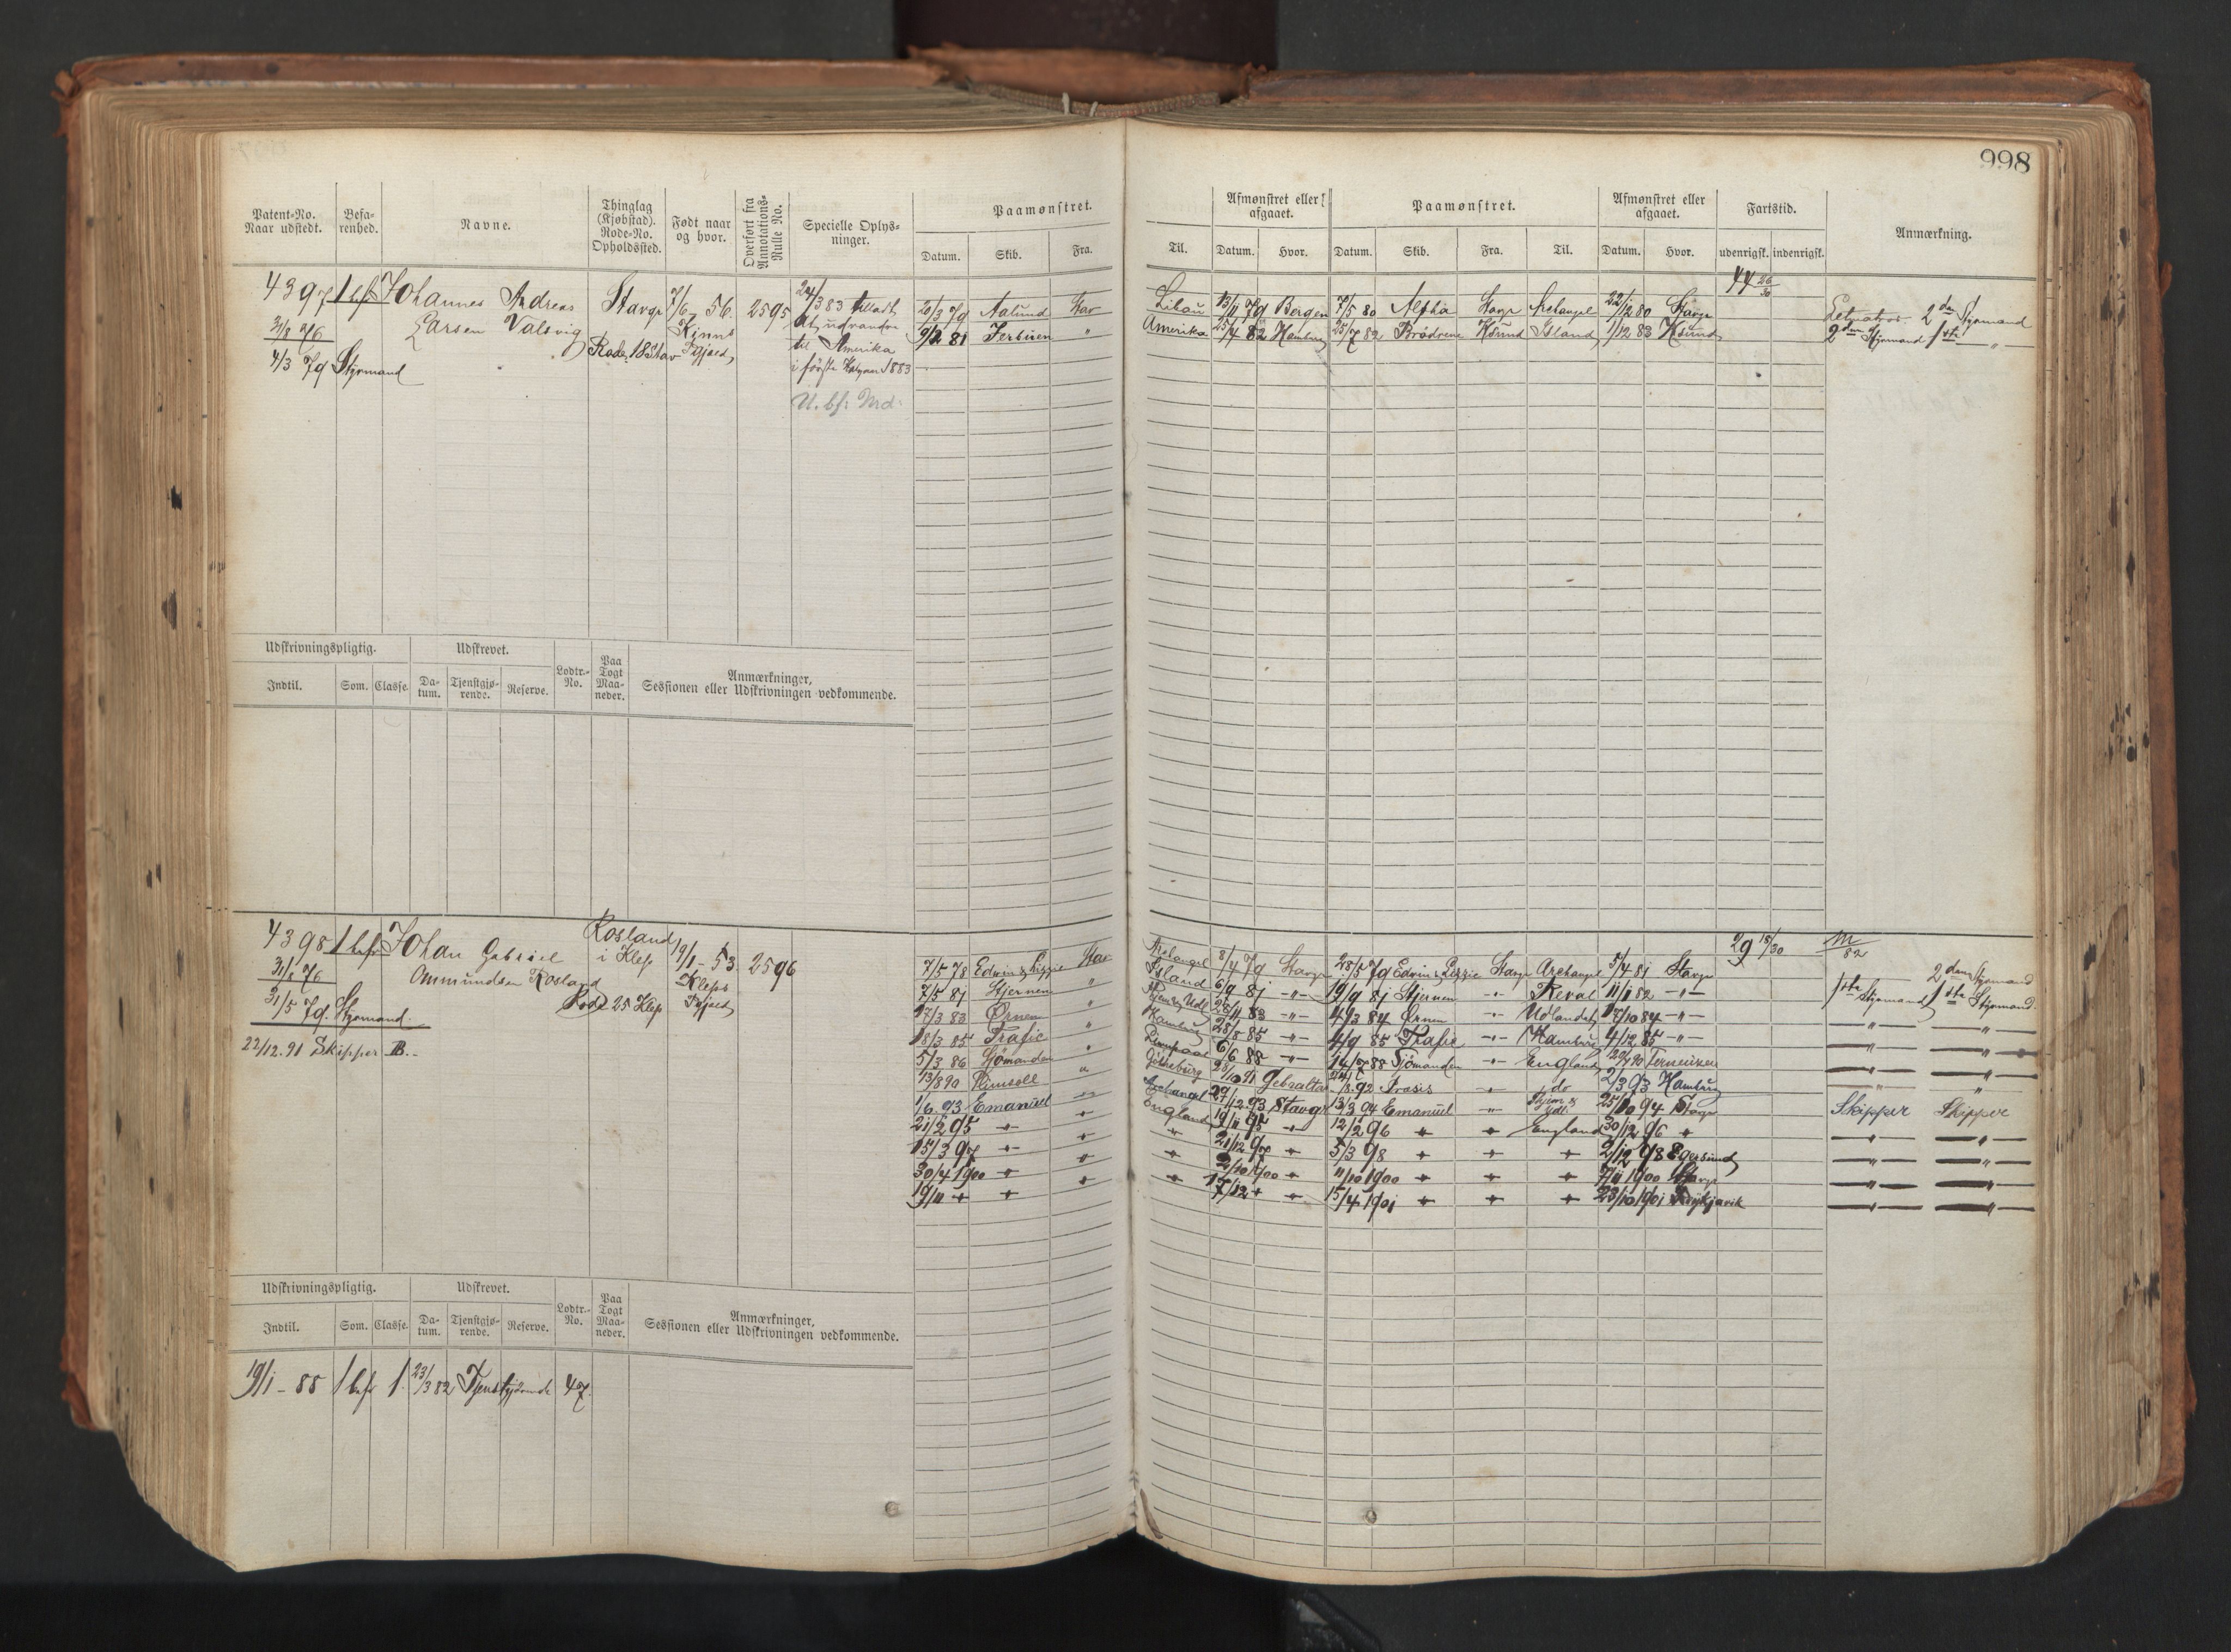 998
Patent-No. Naar udstedt. Befarenhed. Navne. Thinglag (Kjøbstad). Rode-No. Opholdssted. Født naar og hvor. Overført fra Annotations-Rulle No. Specielle Oplysninger. Paamønstret. Afmønstret eller afgaaet. Paamønstret. Afmønstret eller afgaaet. Fartstid. Anmærkning.
Datum. Skib. Fra. Til. Datum. Hvor. Datum. Skib. Fra. Til. Datum. Hvor. udenrigsk. indenrigsk.
4397 1 bf Johannes Andreas Stavgr 7/6 56. 2595 24/3 83 tilladt 44 26/30
Larsen Valevig Kinns at udvandre
31/8 76 Rode 18 Stav Pgjæld til Amerika
4/3 79 Styrmand i første Halvaar 1883
U. bf: Md:
20/3 79 Aalund Stav Libau 13/11 79 Bergen 7/5 80 Alpha Stavgr Archangel 22/12 80 Stavgr Letmatros. 2den Styrmand
9/2 81 Jerbuen " Amerika 25/4 82 Hamburg 25/7 82 Brødrene Ksund Island 1/12 83 Ksund 2den Styrmand 1ste "
Udskrivningspligtig. Udskrevet. Lodtr.-No. Paa Togt Maaneder. Anmærkninger, Sessionen eller Udskrivningen vedkommende.
Indtil. Som. Classe. Datum. Tjenstgjørende. Reserve.
4398 1 bf Johan Gabriel Rosland i Klep 19/1 - 53. 2596 29 18/30
31/8 76 Ommundsen Rosland Kleps
31/5 79. Styrmand. Rode 25 Klep Pgjæld
22/12. 91 Skipper B.
7/5 78 Edwin & Lizzie Stav Archangel 8/4 79 Stavgr 28/5 79 Edwin & Lizzie Stavgr Archangel 5/4 81 Stavgr 2den Styrmand
7/5 81 Stjernen " Island 6/9 81 -"- 19/9 81 Stjernen -"- Reval 11/1 82 -"- 1ste Styrmand 1ste Styrmand
17/3 83 Ørnen " 28/11 83 -"- 4/3 84 Ørnen -"- Udlandet 17/10 84 -"- " "
18/3 85 Trafic " Hamburg 28/8 85 -"- 4/9 85 Trafic -"- Hamburg 4/12 85 -"- " "
5/3 86 Sjømanden " 6/6 88 -"- 14/7 88 Sjømanden -"- England 90 Terneuzen " "
13/8 90 Plimsoll " Göteburg 28/10 91 Gebraltar 92 " do 2/3 93 Hamburg " "
1/6 93 Emanuel " Archangel 27/12 93 Stavgr 13/3 94 Emanuel " Hjem & Udl 25/10 94 Stavgr Skipper Skipper
21/2 95 " " England 19/11 95 " 12/2 96 " " England 30/12 96 " " "
15/3 97 " " " 21/12 97 " 5/3 98 " " " 2/12 98 Egersund " "
30/4 1900 " " " 2/10 1900 " 11/10 1900 " " " 7/11 1900 Stavgr " "
19/11 " " " " 17/12 " " 15/4 1901 " " " 23/10 1901 Reykjavik " "
Udskrivningspligtig. Udskrevet. Lodtr.-No. Paa Togt Maaneder. Anmærkninger, Sessionen eller Udskrivningen vedkommende.
Indtil. Som. Classe. Datum. Tjenstgjørende. Reserve.
19/1 - 88 1 bf 1. 23/3 82 Tjenstgjørende 47.